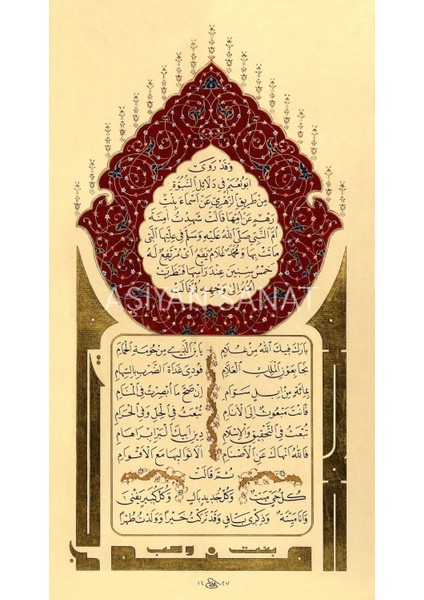 وقد روى
ابو نعيم في دلائل النبوة
من طريق الزهري عن اسماء بنت
رهم عن امها قالت شهدت امنة
ام النبي صلى الله عليه وسلم في علتها التي
ماتت بها ومحمد غلام يفع له
خمس سنين عند راسها فنظرت
امه الى وجهه ثم قالت
ASIYAN SANAT
بارك فيك الله من غلام يا بن الذي من حومة الحمام
نجا بعون الملك العلام فودى غداة الضرب بالسهام
بمائة من ابل سوام ان صح ما ابصرت في المنام
فانت مبعوث الى الانام تبعث في الحل وفي الحرام
تبعث في التحقيق والاسلام دين ابيك البر ابراهام
فالله انهاك عن الاصنام ان لا تواليها مع الاقوام
ثم قالت
كل حي ميت وكل جديد بال وكل كبير يفنى
وانا ميتة وذكري باقي وقد تركت خيرا وولدت طهرا
بنت وهب
١٤٢٧